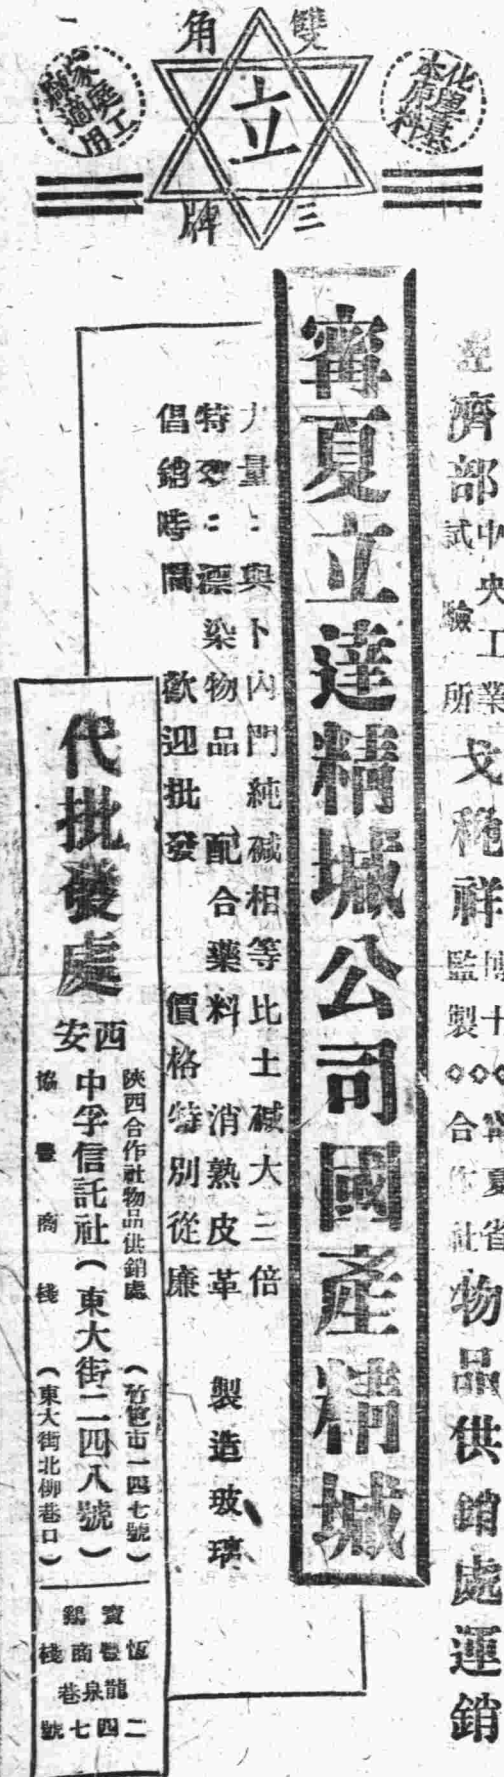 雙
三
角
牌
立
化學基本原料
家庭工廠適用
經濟部中央工業試驗所戈福祥博士監製◇◇◇寗夏省合作社物品供銷處運銷
寗夏立達精堿公司國產精堿
力量：與卜內門純碱相等比土碱大三倍
特效：漂染物品　配合藥料　消熟皮革　製造玻璃
倡銷時間　歡迎批發　價格特別從廉
代批發處
西安
陝西合作社物品供銷處（竹笆市一四七號）
中孚信託社（東大街二四八號）
協豐商棧（東大街北柳巷口）
寶雞
恆豐商棧
龍泉巷
二四七號